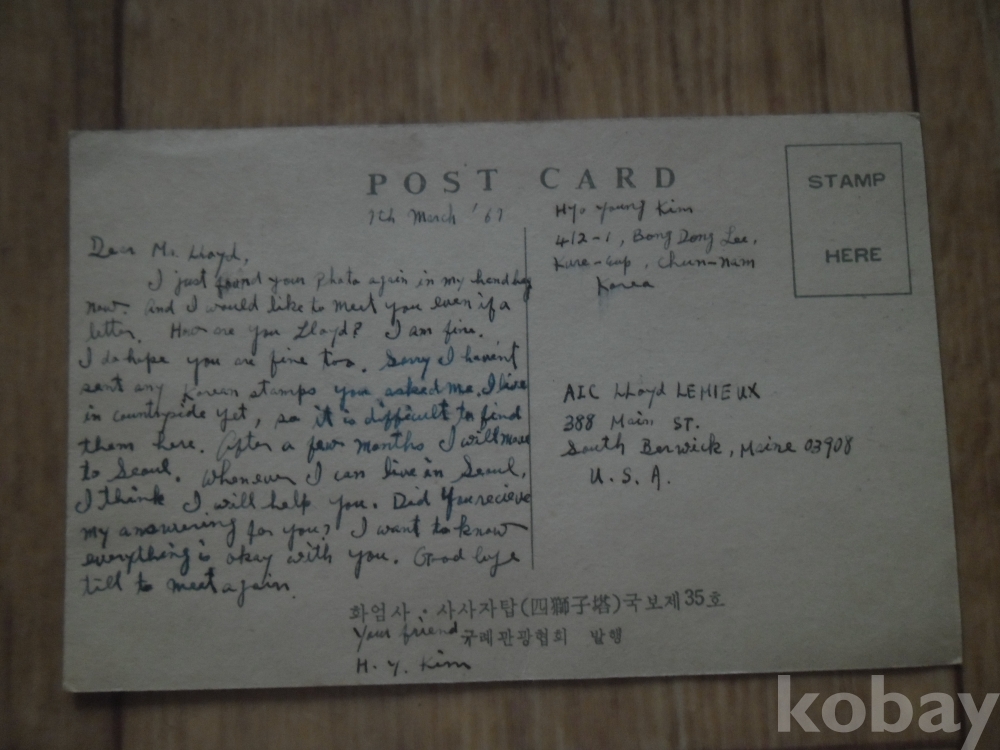 POST CARD
7th March '67
Dear Mr. Lloyd,
I just found your photo again in my handbag
now. And I would like to meet you even if a
letter. How are you Lloyd? I am fine.
I do hope you are fine too. Sorry I haven't
sent any Korean stamps you asked me. I live
in countryside yet, so it is difficult to find
them here. After a few months I will move
to Seoul. Whenever I can live in Seoul,
I think I will help you. Did you recieve
my answering for you? I want to know
everything is okay with you. Good
till to meet again.
Your friend
H. Y. Kim
Hyo Young Kim
412-1, Bong Dong Lee,
Kure-eup, Chun-nam
Korea
STAMP
HERE
AIC Lloyd LEMIEUX
388 Main ST.
South Berwick, Maine 03908
U. S. A.
화엄사 : 사사자탑(四獅子塔)국보제35호
구례관광협회 발행
kobay